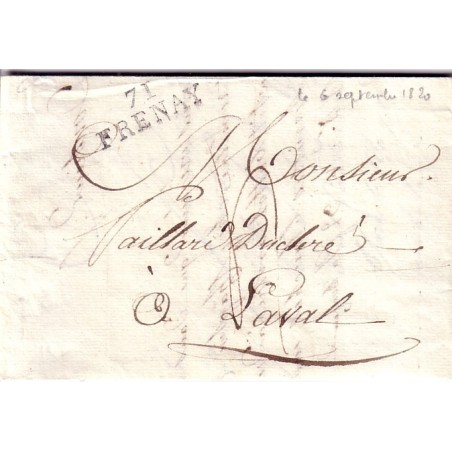 71
FRENAY
le 6 septembre 1820
Monsieur
Paillard Ducléré
à Laval